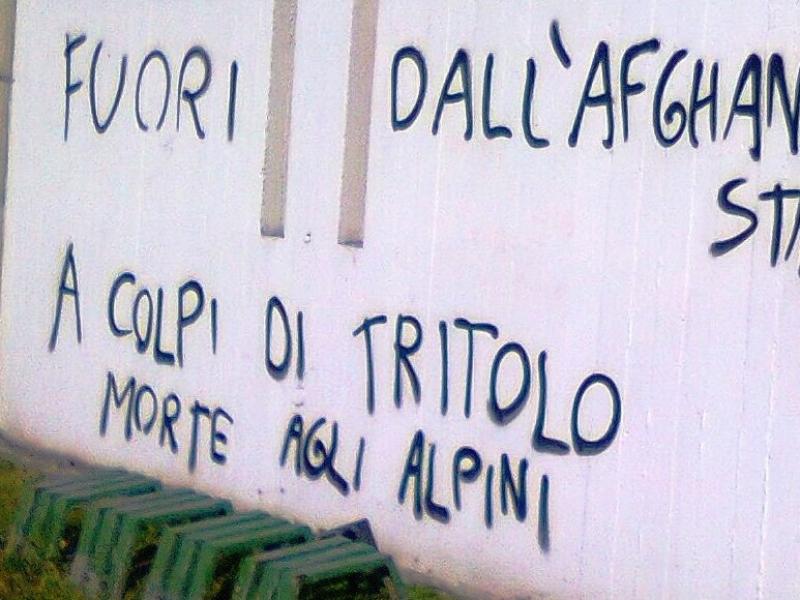 FUORI DALL'AFGHAN
STA
A COLPI DI TRITOLO
MORTE AGLI ALPINI